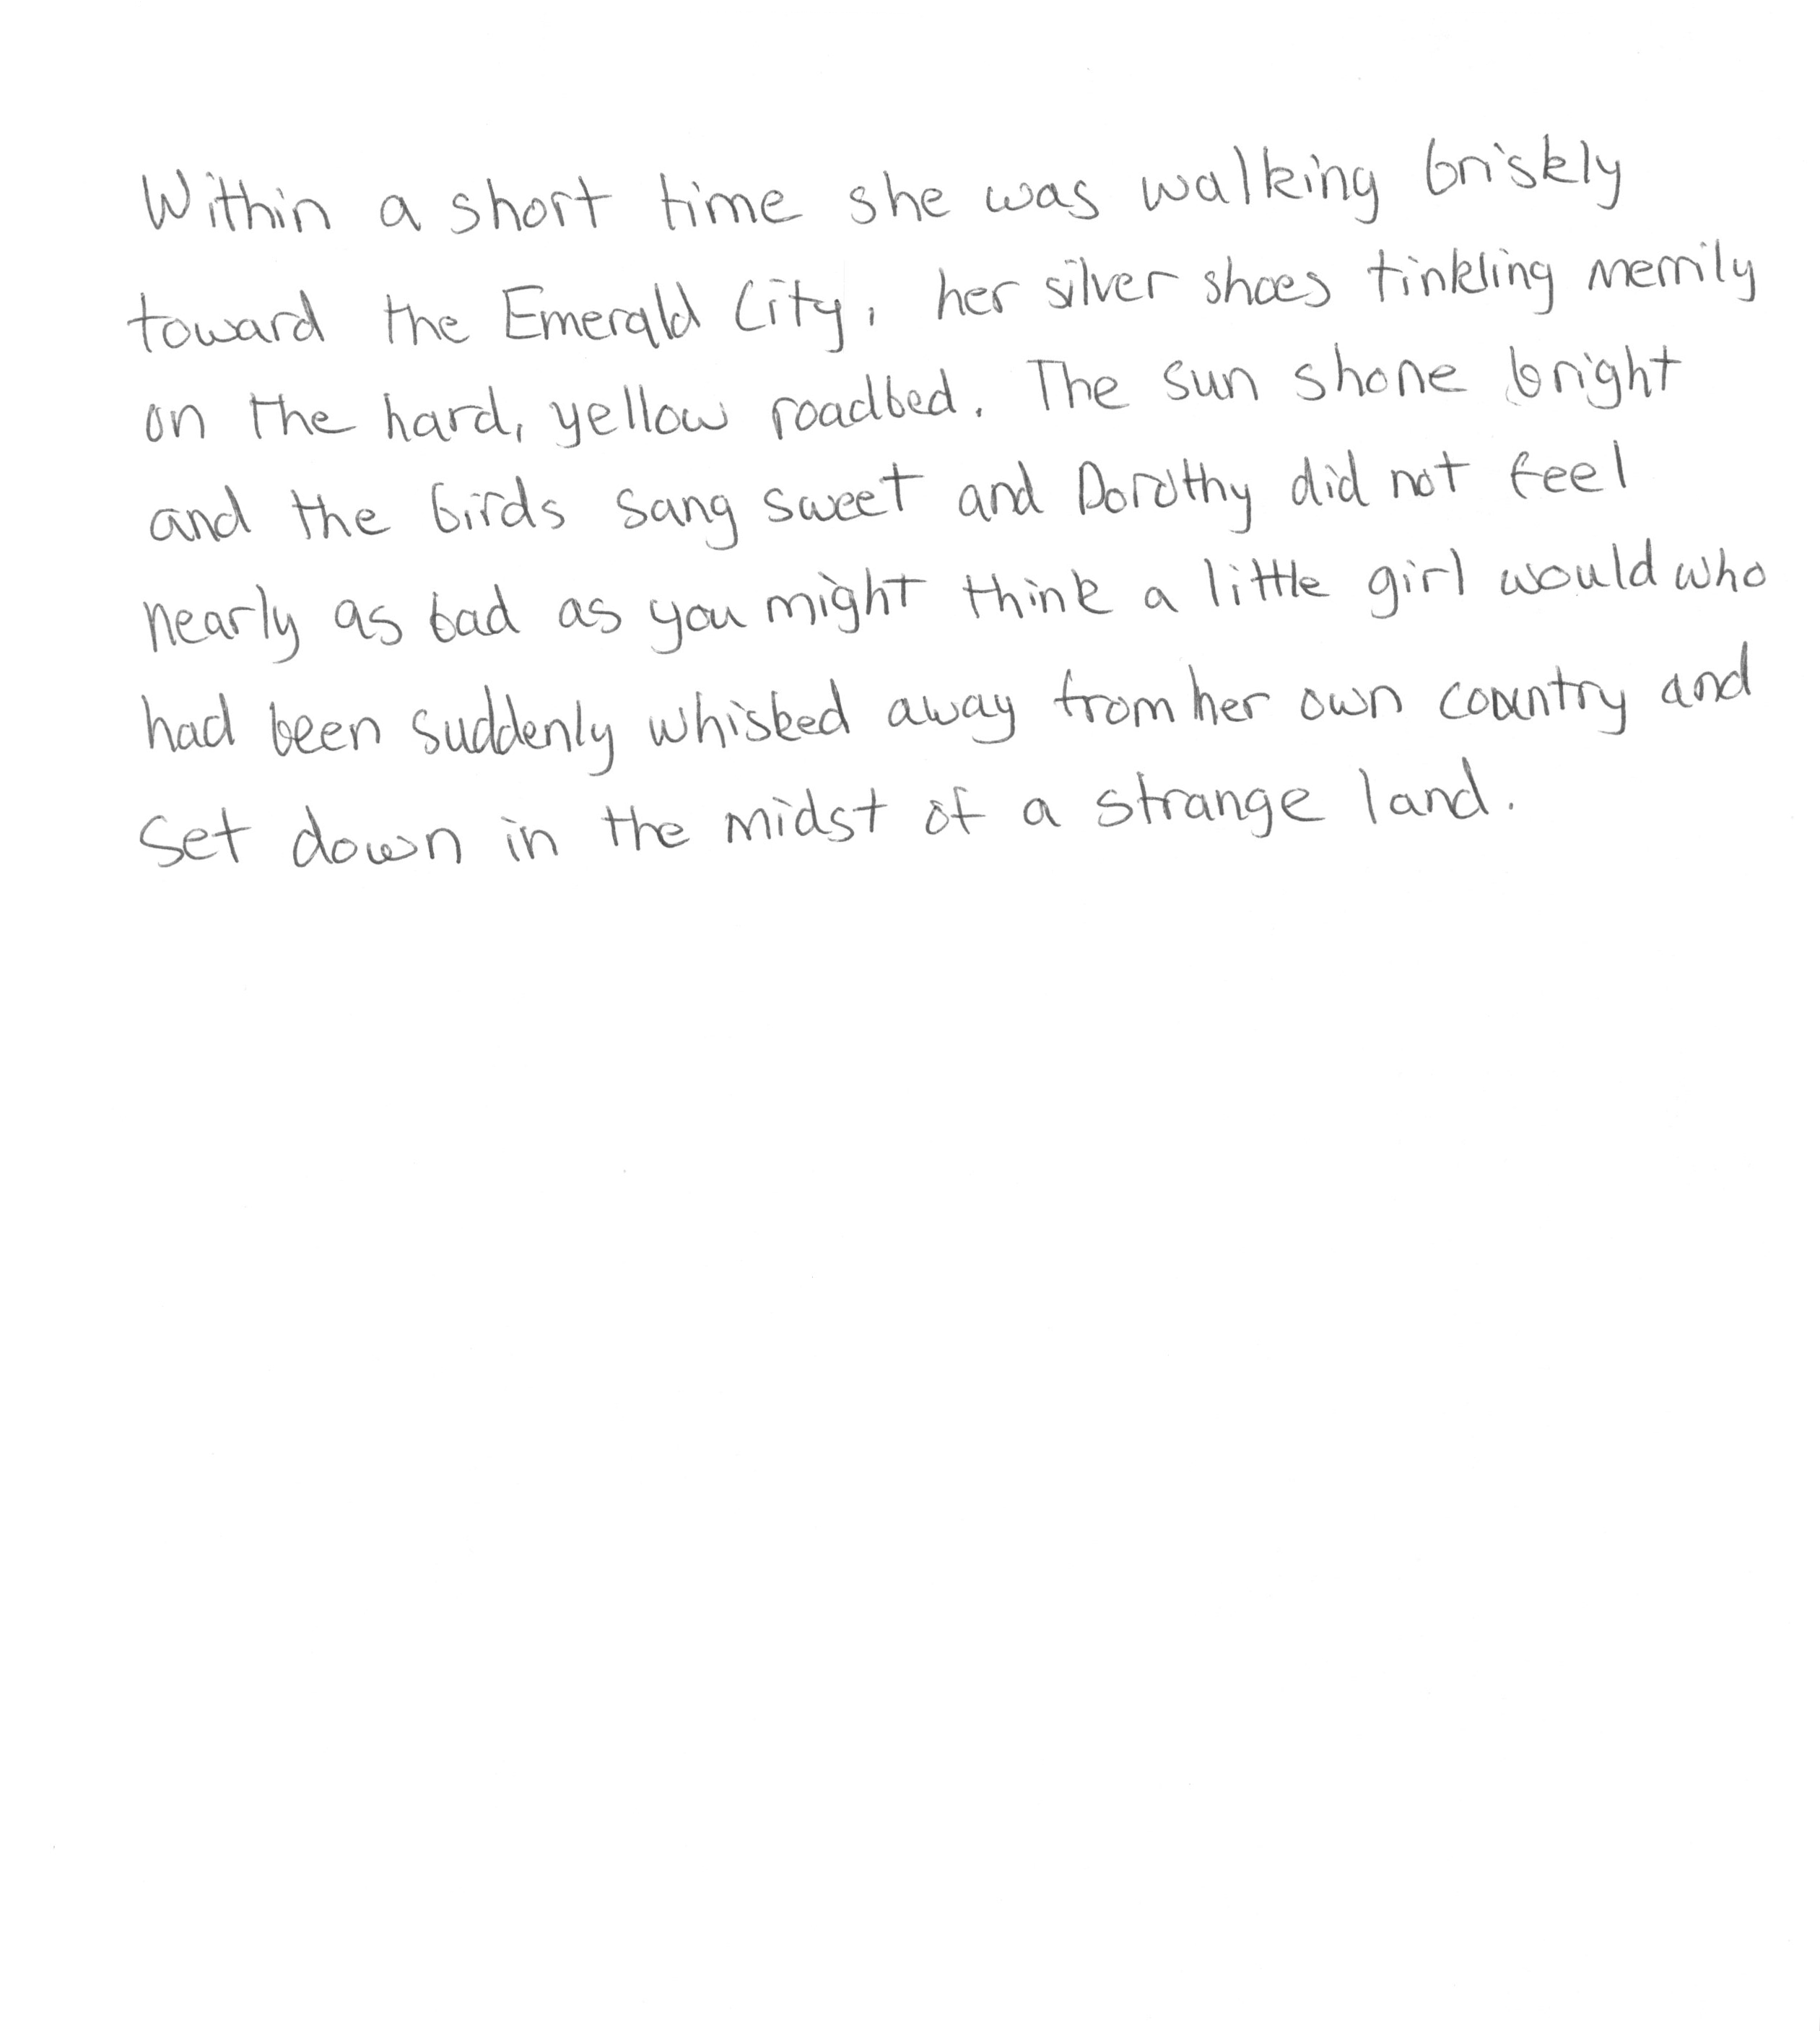 Within a short time she was walking briskly
toward the Emerald City, her silver shoes tinkling merrily
on the hard, yellow roadbed. The sun shone bright
and the birds sang sweet and Dorothy did not feel
nearly as bad as you might think a little girl would who
had been suddenly whisked away from her own country and
set down in the midst of a strange land.